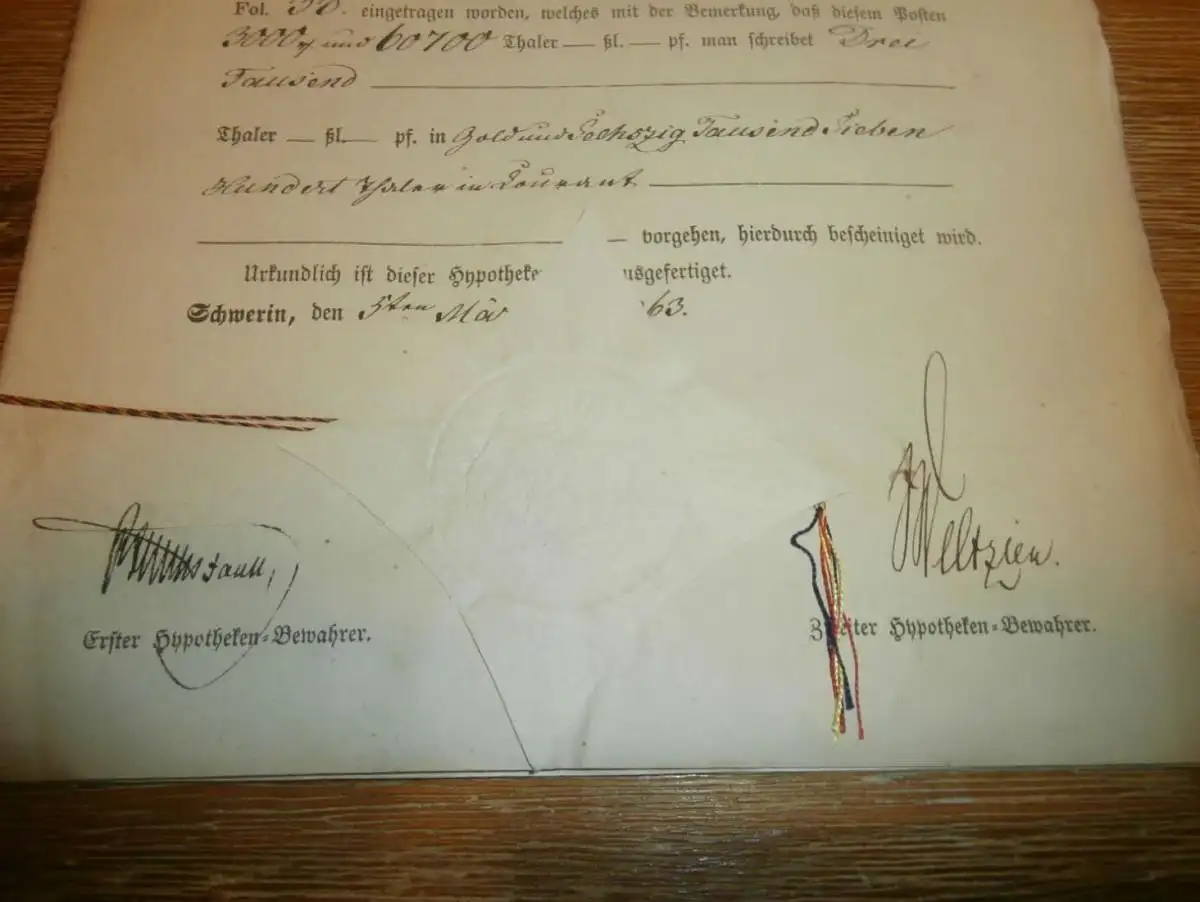 Fol. 58. eingetragen worden, welches mit der Bemerkung, daß diesem Posten
3000 und 60700 Thaler — ßl. — pf. man schreibet Drei
Tausend
Thaler — ßl. — pf. in Gold und Sechszig Tausend Sieben
Hundert Thaler in Courant
— vorgehen, hierdurch bescheiniget wird.
Urkundlich ist dieser Hypotheke usgefertiget.
Schwerin, den 5ten Mär 63.
Weltzien.
Erster Hypotheken=Bewahrer.
Zweiter Hypotheken=Bewahrer.